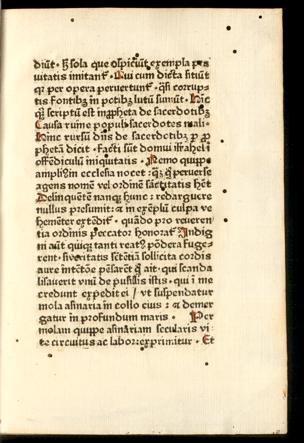 diūt · s̄ sola que aspiciūt exempla pra
uitatis imitant᷑ · Qui cum dicta sitiūt
qr̄ per opera peruertunt᷑ · q̄si corrup⸗
tis fontibꝫ in potibꝫ lutū sumūt · Hīc
qꝫ scriptū est in ꝓpheta de sacerdotibꝫ
Causa ruine populi sacerdotes mali ·
Hinc rursū dn̄s de sacerdotibꝫ ꝑ ꝓ
phetā dicit · Facti sūt domui israhel ī
offēdiculū iniquitatis · Nemo quippe
ampliꝰ in ecclesia nocet : qꝫ q̄ peruerse
agens nomē vel ordinē sāctitatis hēt
Delinquētē nanqꝫ hunc : redarguere
nullus presumit : ⁊ in exemplū culpa ve
hemēter extēdit᷑ · quādo pro reueren
tia ordinis peccator honorat᷑ · Indig
ni aūt quiqꝫ tanti reatꝰ pōdera fuge⸗
rent · si veritatis sētētiā sollicita cordis
aure intētōe pēsarēt q̄ ait · qui scanda
lisauerit vnū de pusillis istis · qui ī me
credunt expedit ei / vt suspendatur
mola asinaria in collo eius : ⁊ demer
gatur in profundum maris · Per
molam quippe asinariam secularis vi⸗
te circuitus ac labor exprimitur · Et